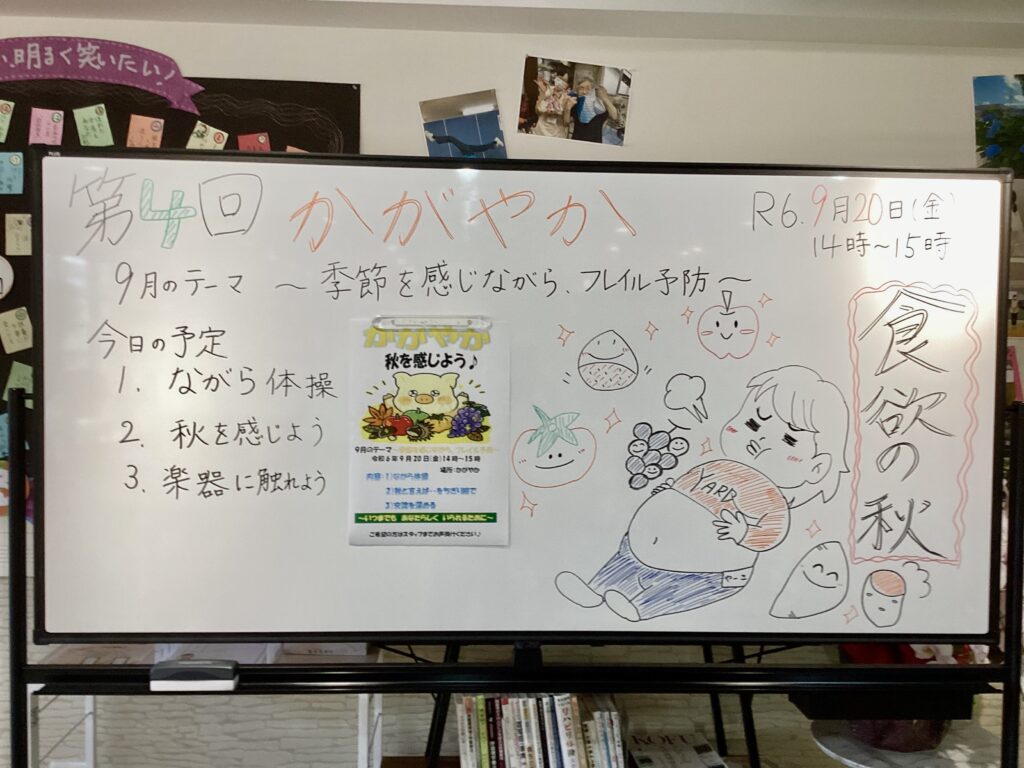 明るく笑いたい!
第4回 かがやか
R6.9月20日(金)
14時~15時
9月のテーマ ~季節を感じながら、フレイル予防~
今日の予定
1. ながら体操
2. 秋を感じよう
3. 楽器に触れよう
かがやか
秋を感じよう♪
9月のテーマ~季節を感じながら、フレイル予防~
令和6年9月20日(金)14時~15時
場所:かがやか
内容:1)ながら体操
2)秋と言えば…をちぎり絵で
3)交流を深める
~いつまでも あなたらしく いられるために~
ご希望の方はスタッフまでお声掛けください♪
食欲の秋
YARD
KOFU